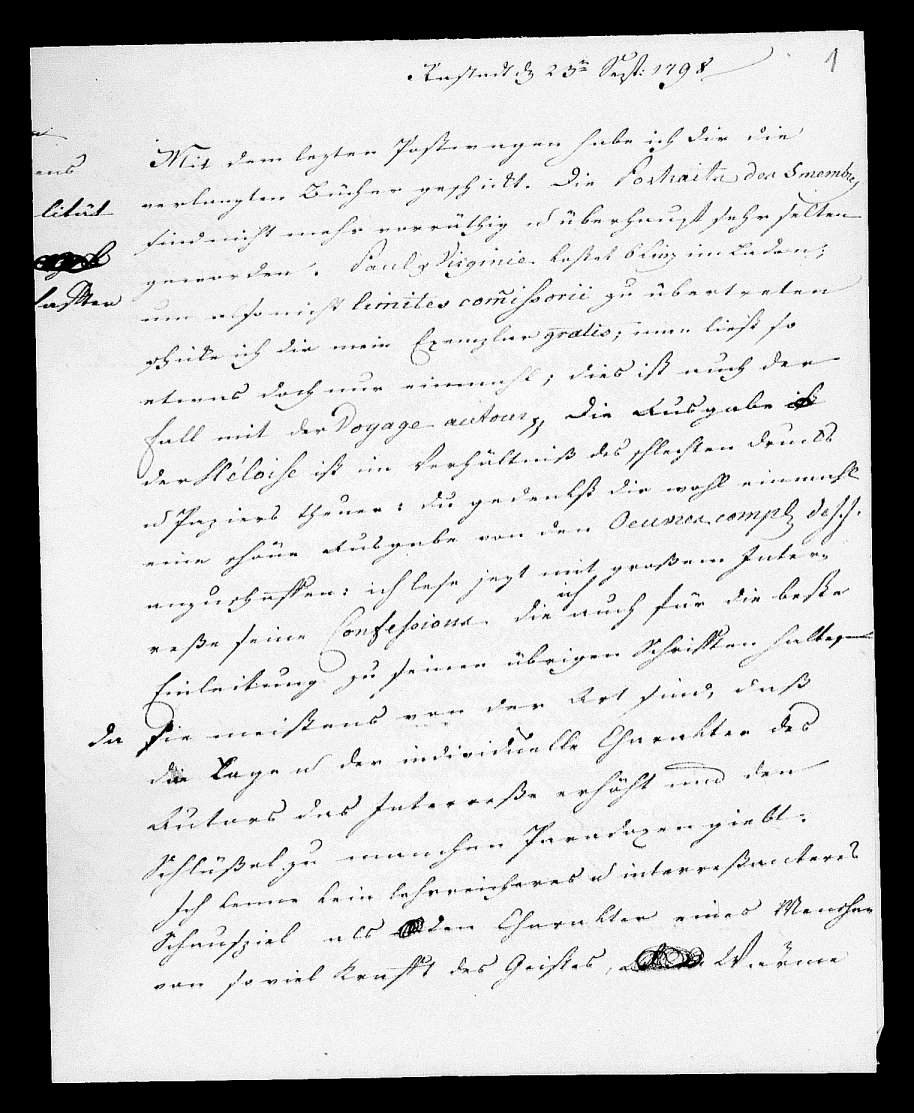 1
Rastadt d 23n Sept: 1798
Mit dem lezten Postwagen habe ich Dir die
verlangten Bücher geschickt. Die Portraits des 5 membres
sind nicht mehr vorräthig u überhaupt sehr selten
geworden. Paul & Virginie kostet 6 im Laden;
um also nicht limites com̄issorii zu übertreten
schicke ich dir mein Exemplar gratis; man ließt so
etwas doch nur einmahl; dies ist auch der
Fall mit der Voyage autour. Die Ausgabe
der Héloise ist im Verhältniß des schlechten Drucks
u Papiers theuer: du gedenkst dir wohl einmahl
eine schöne Ausgabe von den Oeuvres compl des J.J.
anzuschaffen: ich lese jezt mit großem Inter-
reße seine Confessions. die ich auch für die beste
Einleitung zu seinen übrigen Schriften halte,
da sie meistens von der Art sind, daß
die Lage u der individuelle Charakter des
Autors das Interreße erhöht und den
Schlüßel zu manchen Paradoxen giebt.
Ich kenne kein lehrreicheres u interreßanteres
Schauspiel als den Charakter eines Menschen
von so viel Krafft des Geistes, Wärme
ens
lität